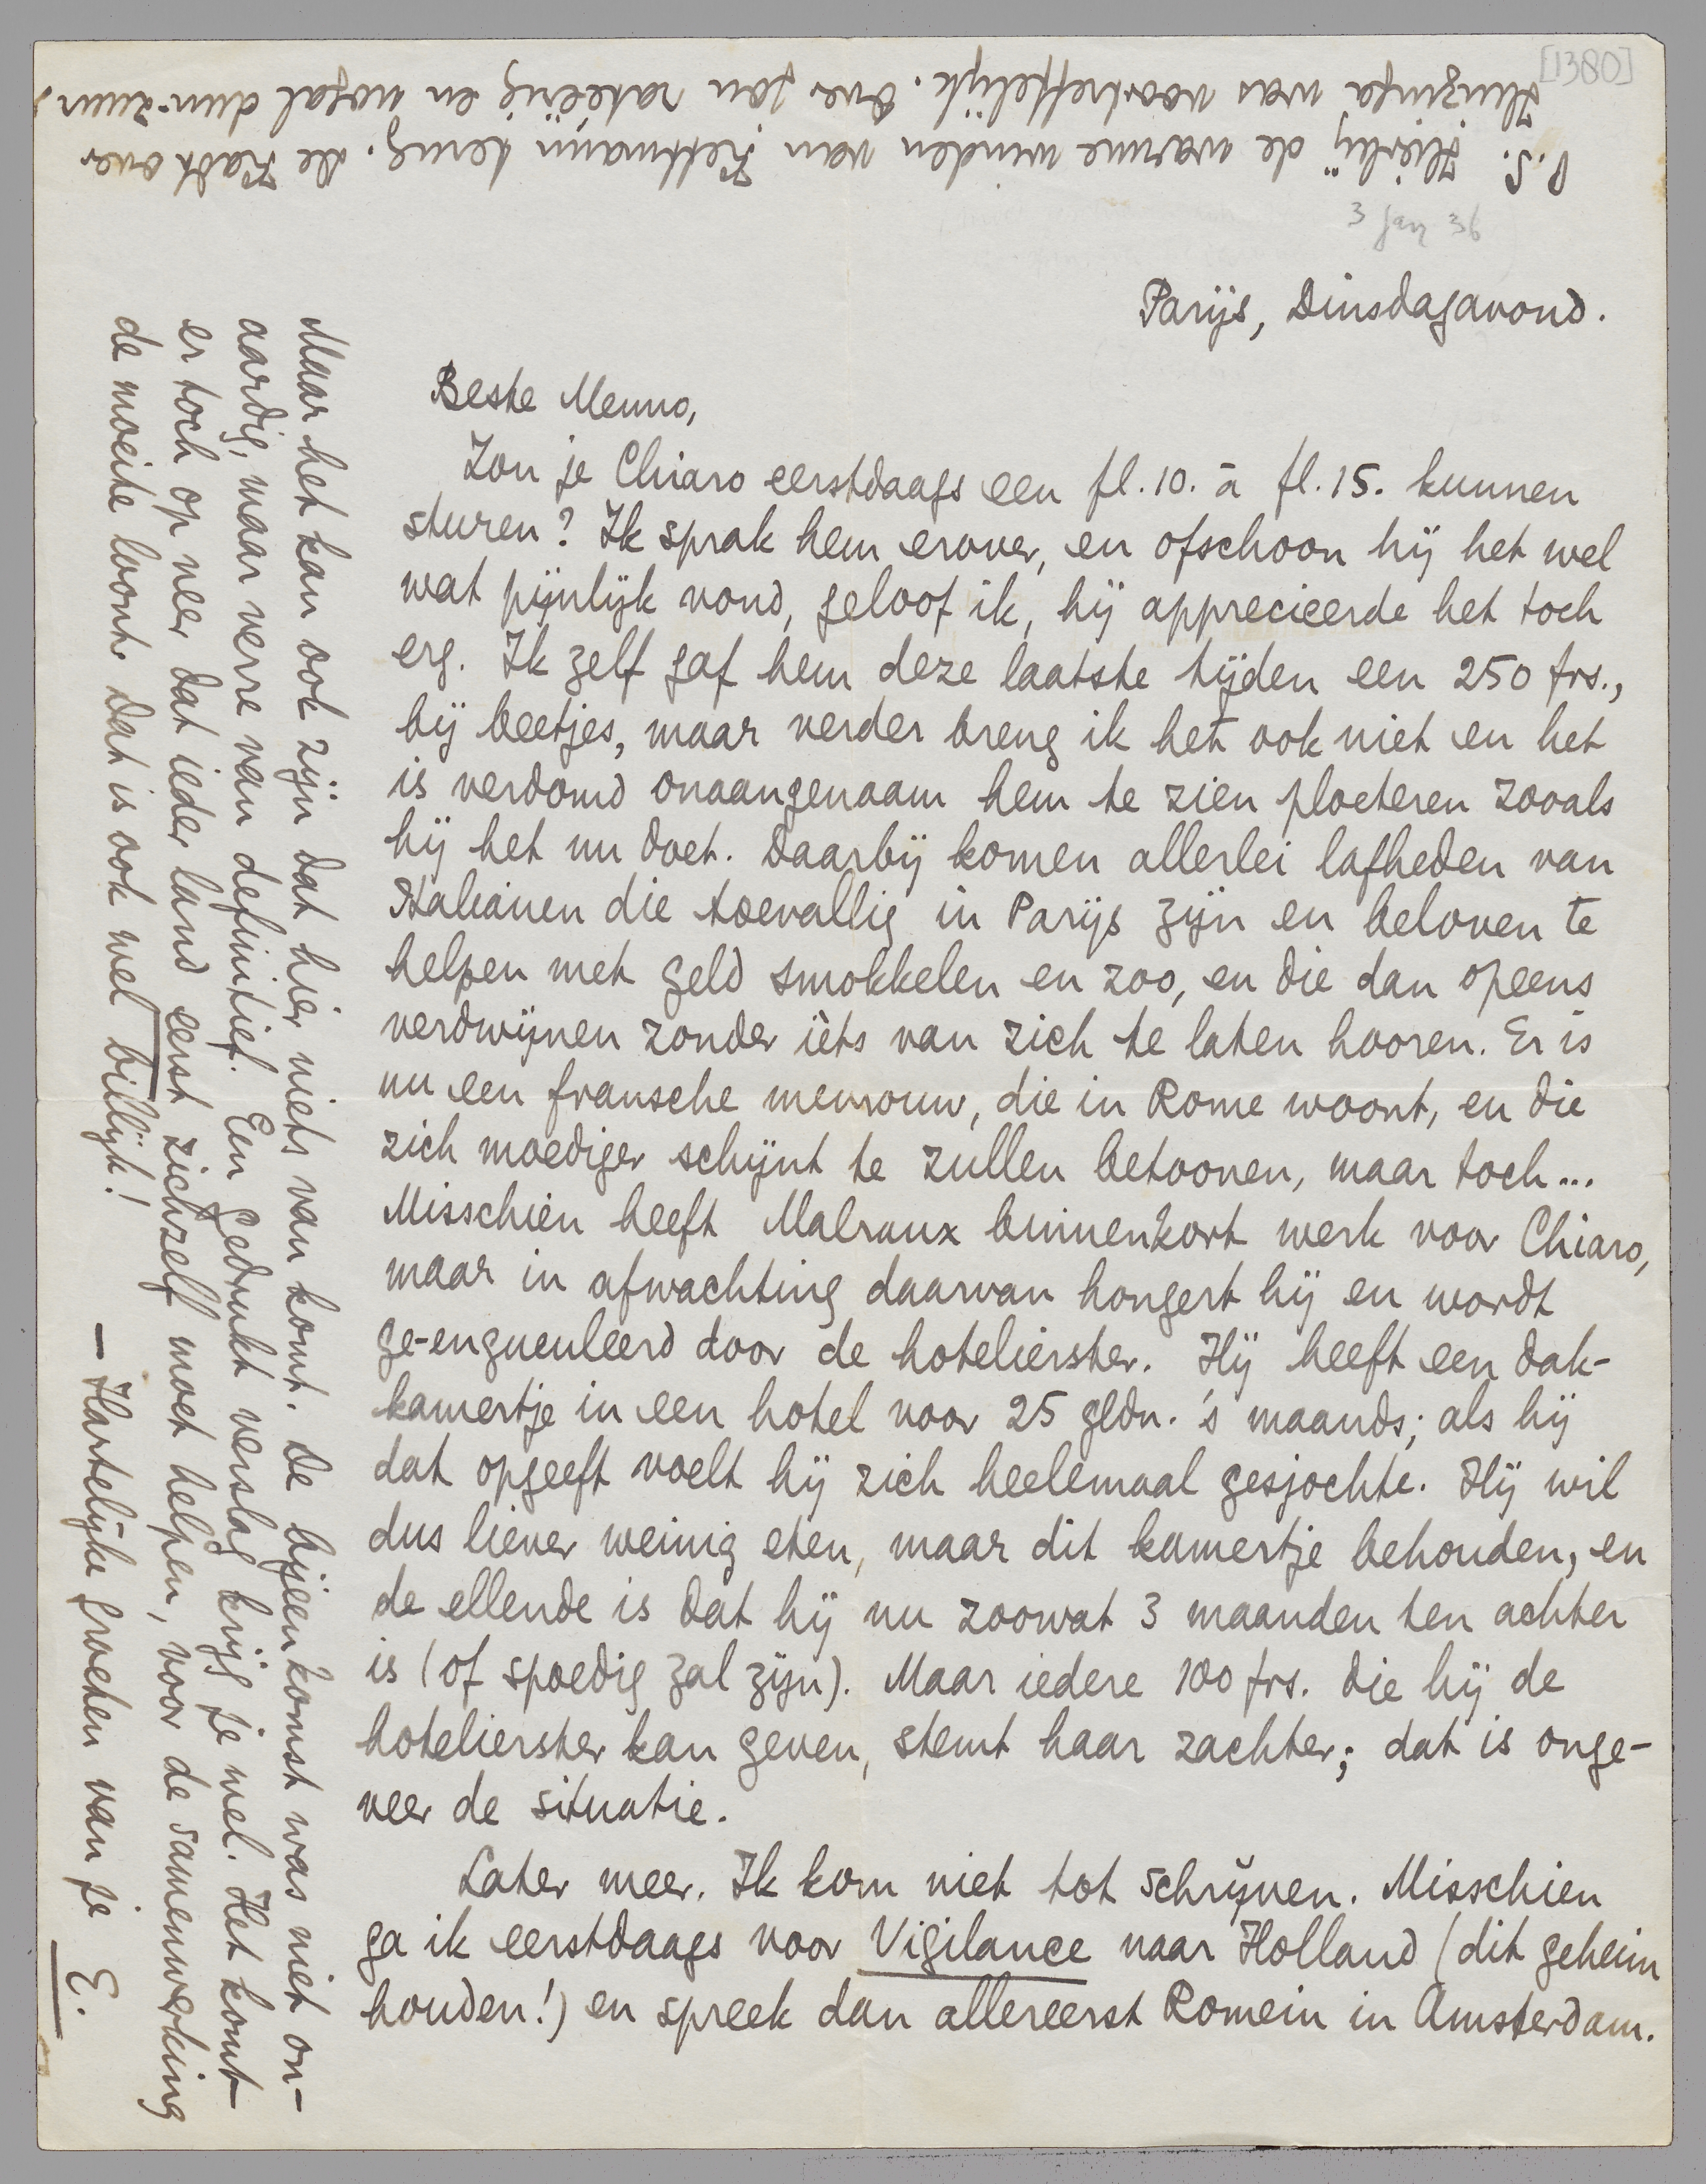 [1380]
3 jan 36
Parijs, Dinsdagavond.
Beste Menno,
Zou je Chiaro eerstdaags een fl. 10. à fl. 15. kunnen
sturen? Ik sprak hem erover, en ofschoon hij het wel
wat pijnlijk vond, geloof ik, hij apprecieerde het toch
erg. Ik zelf gaf hem deze laatste tijden een 250 frs.,
bij beetjes, maar verder breng ik het ook niet en het
is verdomd onaangenaam hem te zien ploeteren zooals
hij het nu doet. Daarbij komen allerlei lafheden van
Italianen die toevallig in Parijs zijn en beloven te
helpen met geld smokkelen en zoo, en die dan opeens
verdwijnen zonder iets van zich te laten hooren. Er is
nu een fransche mevrouw, die in Rome woont, en die
zich moediger schijnt te zullen betoonen, maar toch...
Misschien heeft Malraux binnenkort werk voor Chiaro,
maar in afwachting daarvan hongert hij en wordt
ge-engueuleerd door de hotelierster. Hij heeft een dak-
kamertje in een hotel voor 25 gldn. 's maands; als hij
dat opgeeft voelt hij zich heelemaal gesjochte. Hij wil
dus liever weinig eten, maar dit kamertje behouden, en
de ellende is dat hij nu zoowat 3 maanden ten achter
is (of spoedig zal zijn). Maar iedere 100 frs. die hij de
hotelierster kan geven, stemt haar zachter; dat is onge-
veer de situatie.
Later meer. Ik kom niet tot schrijven. Misschien
ga ik eerstdaags voor Vigilance naar Holland (dit geheim
houden!) en spreek dan allereerst Romein in Amsterdam.
Maar het kan ook zijn dat hier niets van komt. De bijeenkomst was niet on-
aardig, maar verre van definitief. Een gedrukt verslag krijg je wel. Het komt
er toch op neer dat ieder land eerst zichzelf moet helpen, voor de samenwerking
de moeite loont. Dat is ook wel billijk!
— Hartelijke groeten van je E.
P.S. Hierbij de warme winden van Kettmann terug. De Kadt over
Huizinga was voortreffelijk. Over Jan ratelig en nogal dun-zuur.